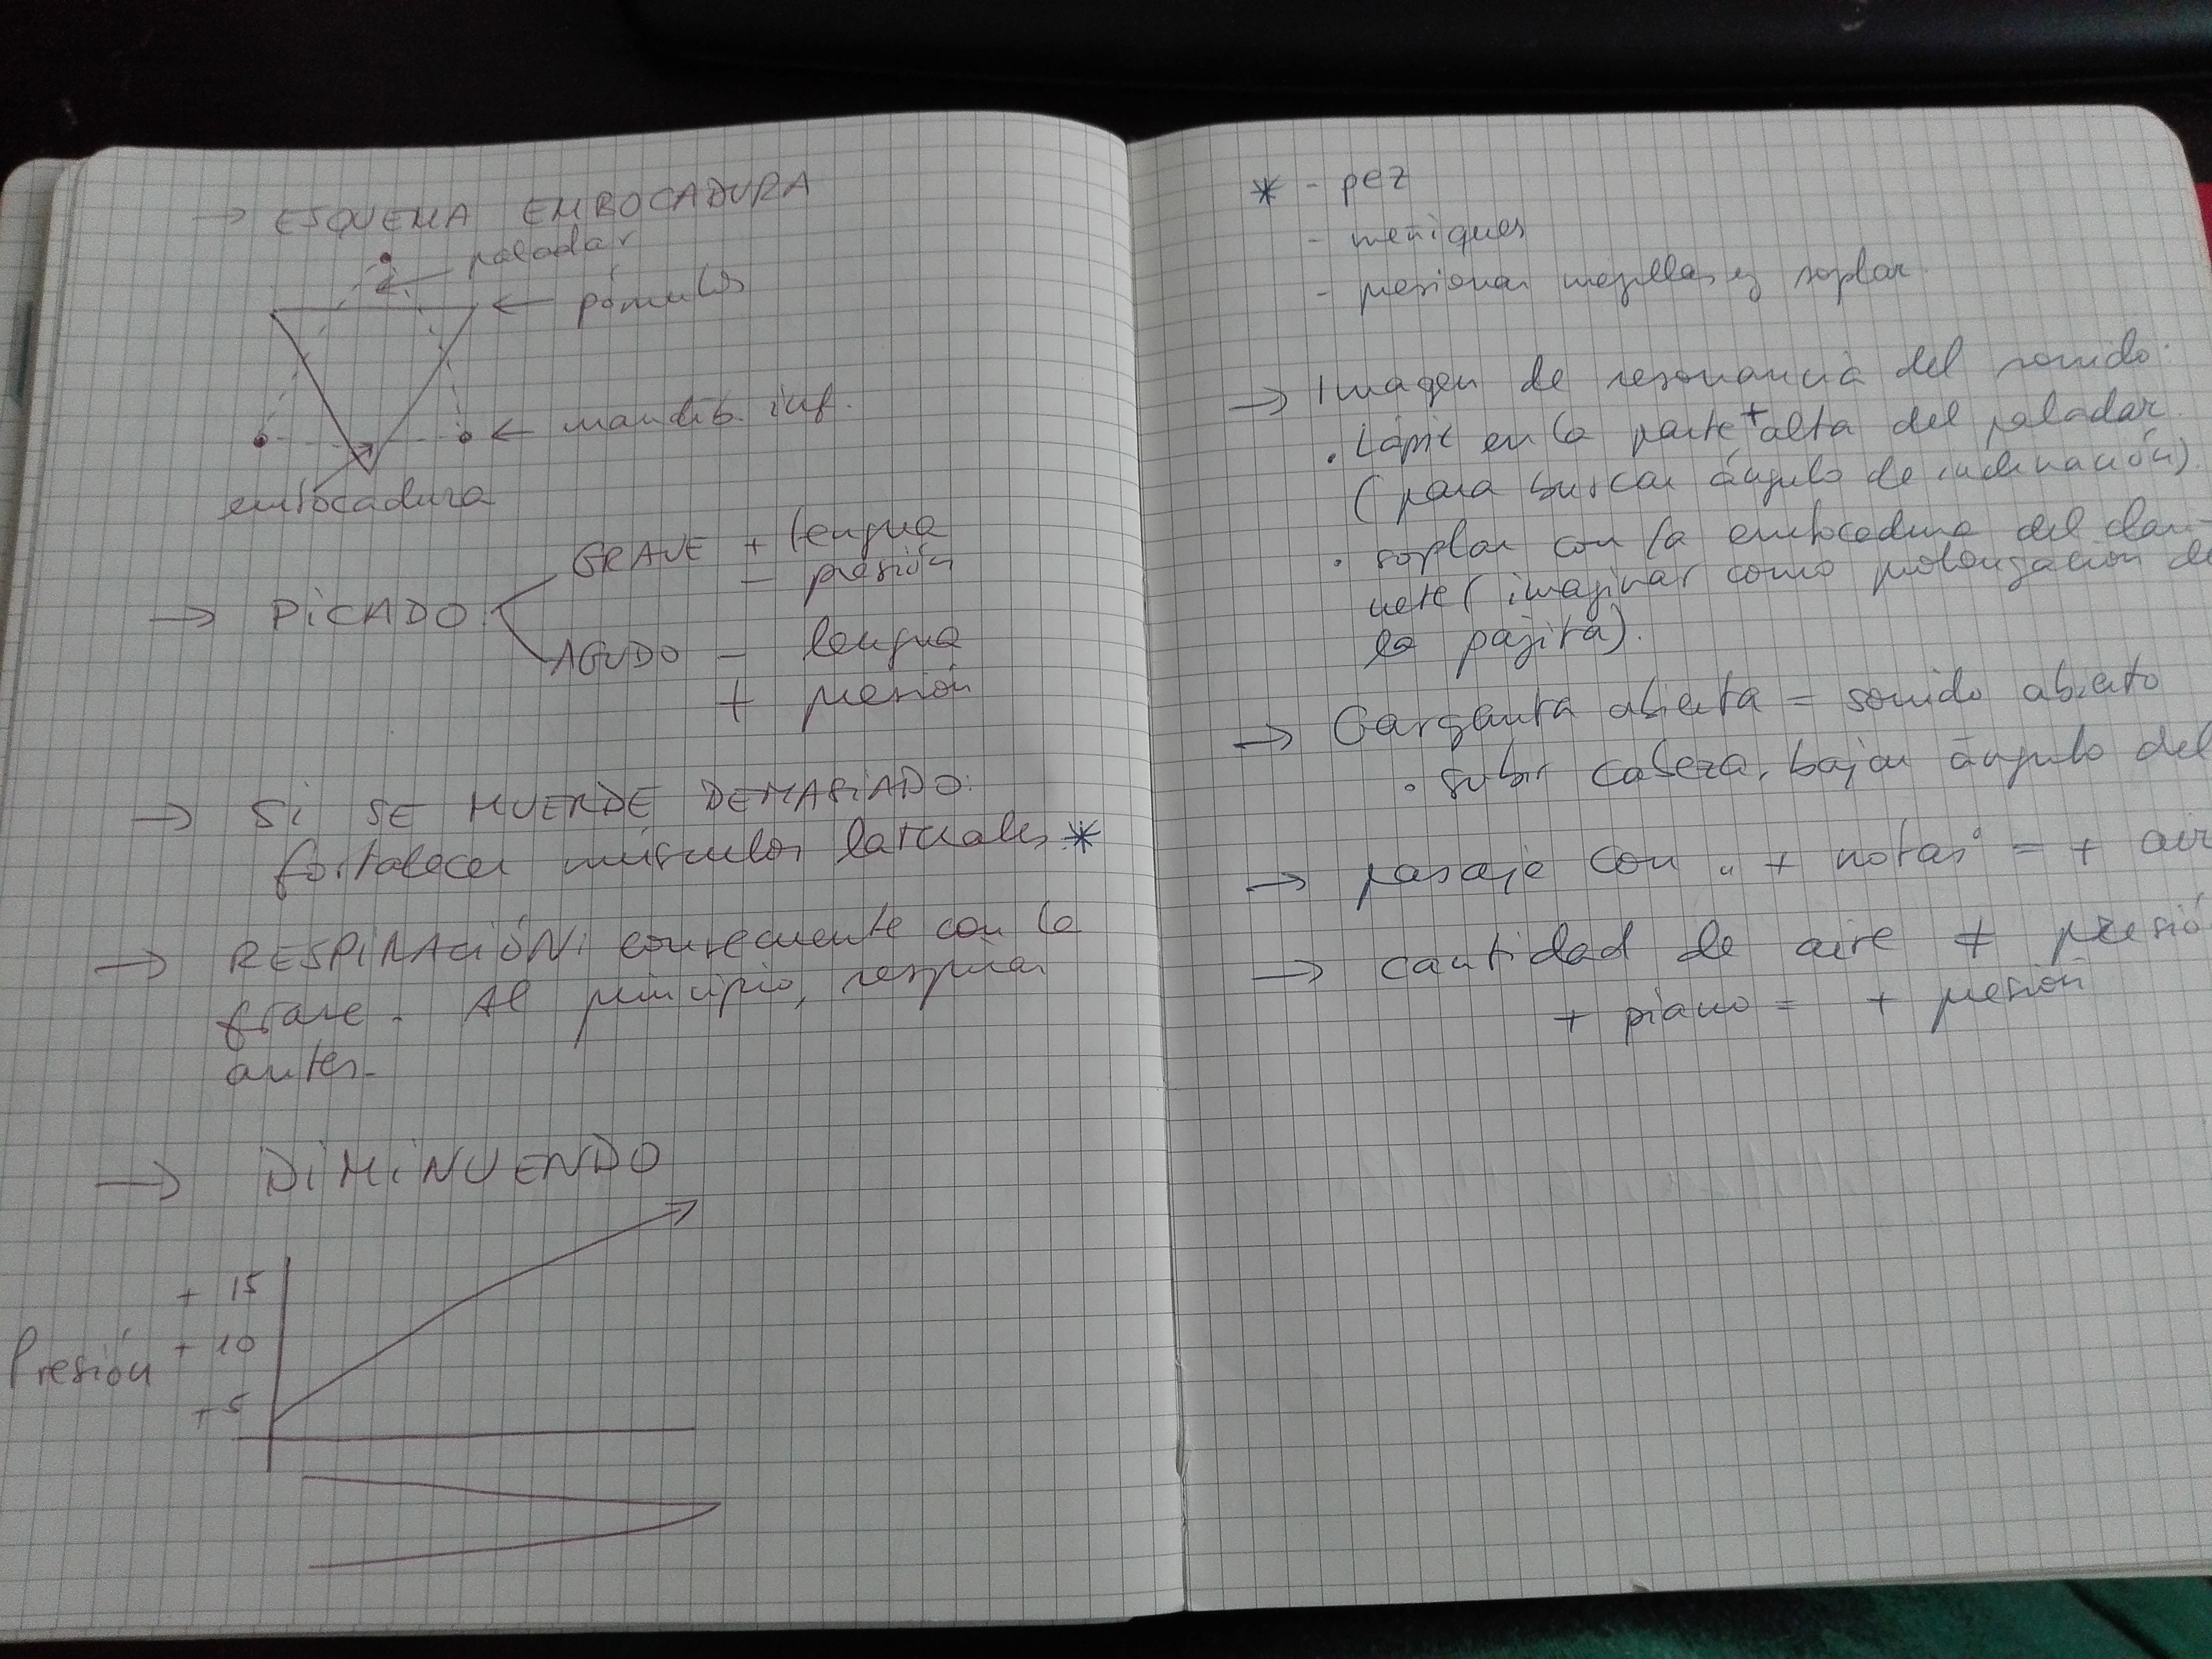 → ESQUEMA EMBOCADURA
← paladar
← pómulos
← mandib. inf.
embocadura
→ PICADO GRAVE + lengua
- presión
AGUDO - lengua
+ presión
→ Si SE MUERDE DEMASIADO:
fortalecer músculos laterales *
→ RESPIRACIÓN: consecuente con la
frase. Al principio, respirar
antes.
→ DIMINUENDO
+ 15
Presión + 10
+ 5
* - pez
- meñiques
- presionar mejillas y soplar
→ Imagen de resonancia del sonido:
. Lápiz en la parte + alta del paladar
(para buscar ángulo de inclinación).
. soplar con la embocadura del clari-
nete (imaginar como prolongación de
la pajita).
→ Garganta abierta = sonido abierto
. subir cabeza, bajar ángulo del
→ pasaje con " + notas" = + air
→ cantidad de aire ≠ presió
+ piano = + presión